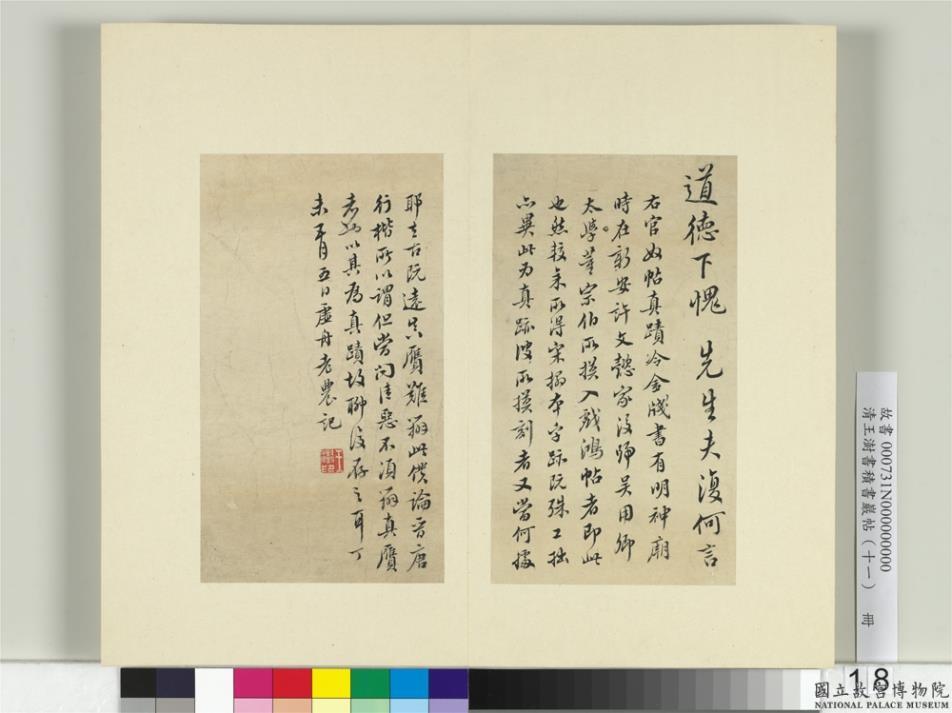 道德下愧 先生夫復何言
右官奴帖真蹟冷金牋書有明神廟
時在新安許文懿家後歸吳用卿
太學董宗伯所摸入戲鴻帖者即此
也然較余所得宋搨本字跡既殊工拙
亦異此為真跡彼所摸刻者又當何據
耶立古既遠真贋難辨此僕論晉唐
行楷所以謂但當問佳惡不須辨真贋
者以其為真蹟故聊復存之耳丁
未五日虛舟老農記
故書 000731N000000000
清王澍書積書巖帖（十一） 冊
18
國立故宮博物院
NATIONAL PALACE MUSEUM